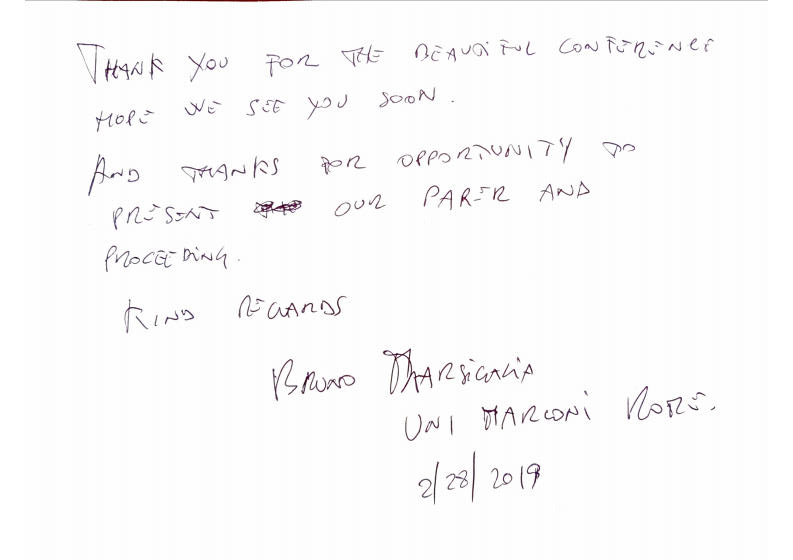 THANK YOU FOR THE BEAUTIFUL CONFERENCE
HOPE WE SEE YOU SOON.
AND THANKS FOR OPPORTUNITY TO
PRESENT OUR PAPER AND
PROCEEDING.
KIND REGARDS
BRUNO MARSIGALIA
UNI MARCONI ROME.
2/28/2019